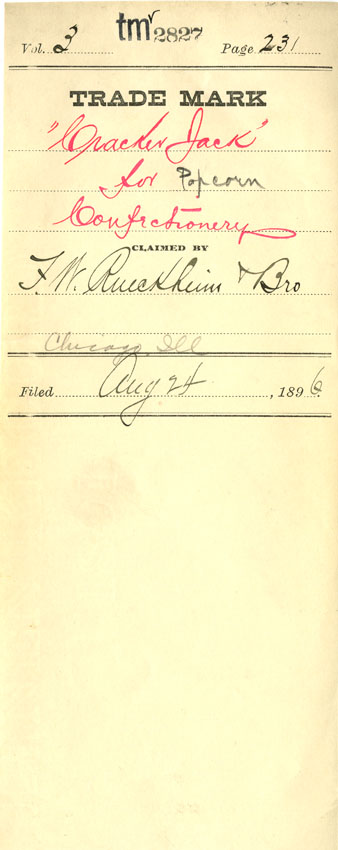 tmr 2827
Vol. 3 Page 231
TRADE MARK
"Cracker Jack"
for Popcorn
Confectionery
CLAIMED BY
F. W. Rueckheim & Bro
Chicago Ill
Filed Aug 24, 1896.